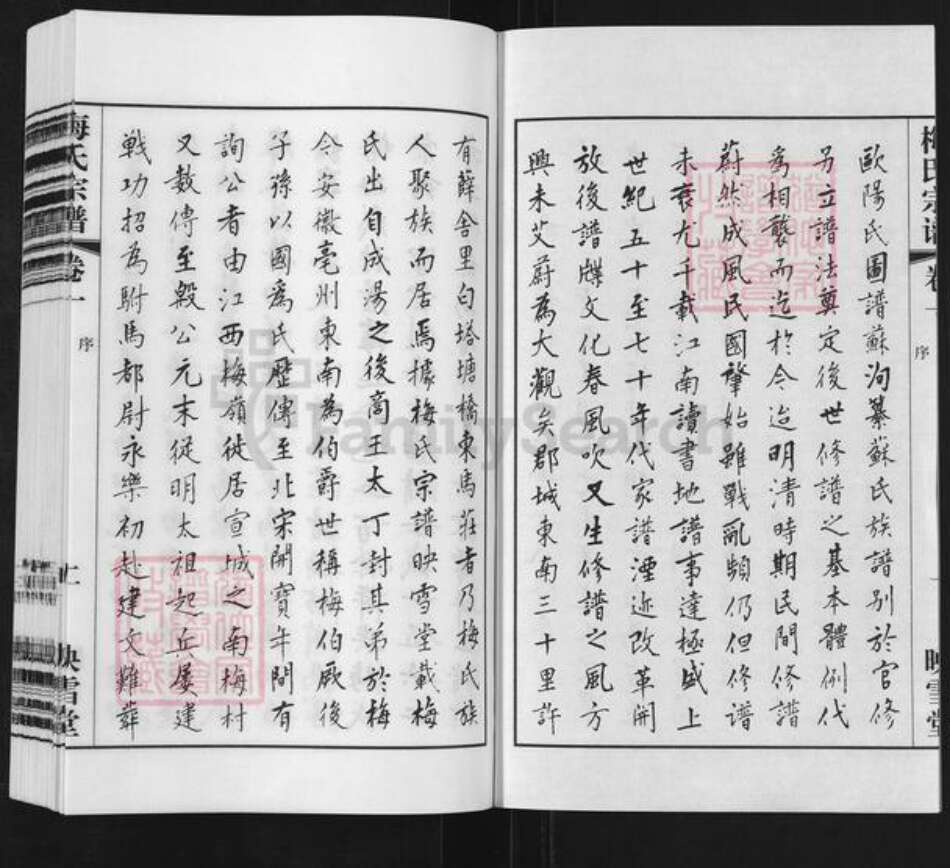 梅氏宗譜
卷一
序
映雪堂
歐陽氏圖譜蘇洵纂蘇氏族譜別於官修
另立譜法奠定後世修譜之基本體例代
為相襲而迄於今迨明清時期民間修譜
蔚然成風民國肇始雖戰亂頻仍但修譜
未衰尤千載江南讀書地譜事達極盛上
世紀五十至七十年代家譜湮迹改革開
放後譜牒文化春風吹又生修譜之風方
興未艾蔚為大觀矣郡城東南三十里許
有薛舍里白塔塘橋東馬莊者乃梅氏族
人聚族而居焉據梅氏宗譜映雪堂載梅
氏出自成湯之後商王太丁封其弟於梅
今安徽亳州東南為伯爵世稱梅伯厥後
子孫以國為氏歷傳至北宋開寶年間有
詢公者由江西梅嶺徙居宣城之南梅村
又數傳至毅公元末從明太祖起兵屢建
戰功招為駙馬都尉永樂初赴建文難葬
梅氏宗譜
卷一
序
映雪堂
FamilySearch